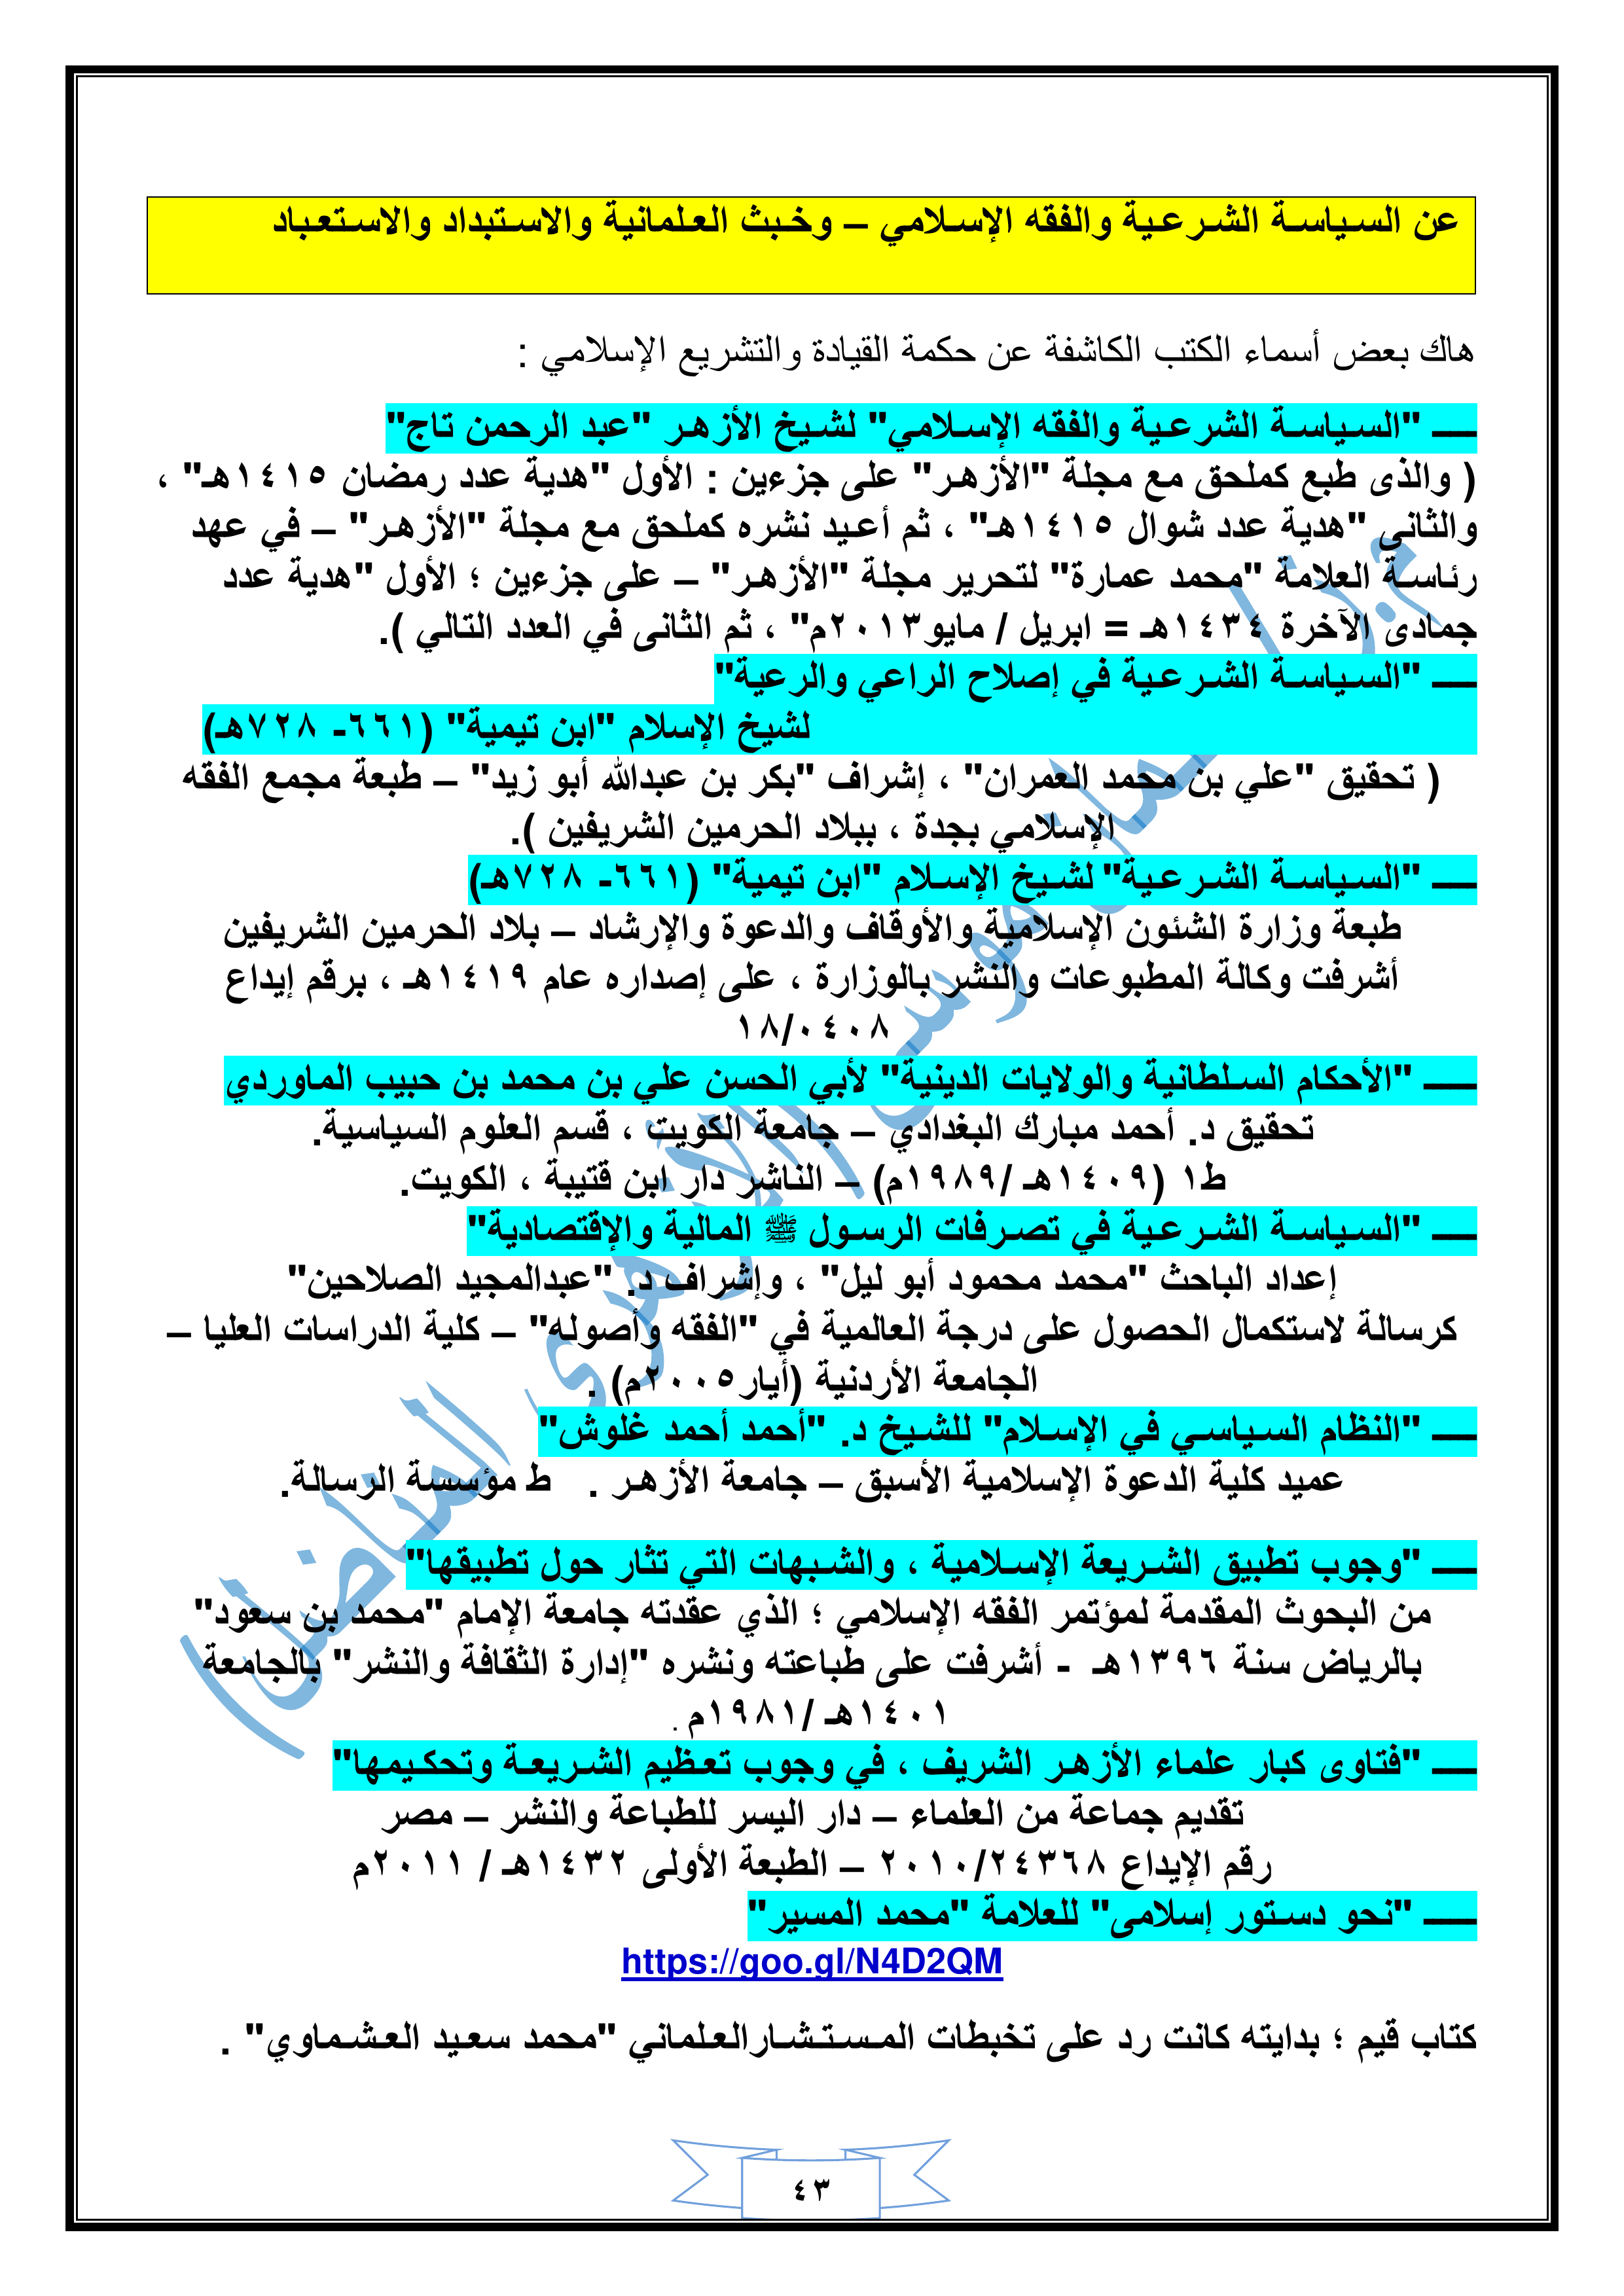 عن السياسة الشرعية والفقه الإسلامي – وخبث العلمانية والاستبداد والاستعباد
هاك بعض أسماء الكتب الكاشفة عن حكمة القيادة والتشريع الإسلامي :
ـــ "السياسة الشرعية والفقه الإسلامي" لشيخ الأزهر "عبد الرحمن تاج"
( والذى طبع كملحق مع مجلة "الأزهر" على جزءين : الأول "هدية عدد رمضان ١٤١٥هـ" ،
والثانى "هدية عدد شوال ١٤١٥هـ" ، ثم أعيد نشره كملحق مع مجلة "الأزهر" – في عهد
رئاسة العلامة "محمد عمارة" لتحرير مجلة "الأزهر" – على جزءين ؛ الأول "هدية عدد
جمادى الآخرة ١٤٣٤هـ = ابريل / مايو٢٠١٣م" ، ثم الثانى في العدد التالي ).
ـــ "السياسة الشرعية في إصلاح الراعي والرعية"
لشيخ الإسلام "ابن تيمية" (٦٦١- ٧٢٨هـ)
( تحقيق "علي بن محمد العمران" ، إشراف "بكر بن عبدالله أبو زيد" – طبعة مجمع الفقه
الإسلامي بجدة ، ببلاد الحرمين الشريفين ).
ـــ "السياسة الشرعية" لشيخ الإسلام "ابن تيمية" (٦٦١- ٧٢٨هـ)
طبعة وزارة الشئون الإسلامية والأوقاف والدعوة والإرشاد – بلاد الحرمين الشريفين
أشرفت وكالة المطبوعات والنشر بالوزارة ، على إصداره عام ١٤١٩هـ ، برقم إيداع
١٨/٠٤٠٨
ـــ "الأحكام السلطانية والولايات الدينية" لأبي الحسن علي بن محمد بن حبيب الماوردي
تحقيق د. أحمد مبارك البغدادي – جامعة الكويت ، قسم العلوم السياسية.
ط١ (١٤٠٩هـ /١٩٨٩م) – الناشر دار ابن قتيبة ، الكويت.
ـــ "السياسة الشرعية في تصرفات الرسول ﷺ المالية والإقتصادية"
إعداد الباحث "محمد محمود أبو ليل" ، وإشراف د. "عبدالمجيد الصلاحين"
كرسالة لاستكمال الحصول على درجة العالمية في "الفقه وأصوله" – كلية الدراسات العليا –
الجامعة الأردنية (أيار٢٠٠٥م) .
ـــ "النظام السياسي في الإسلام" للشيخ د. "أحمد أحمد غلوش"
عميد كلية الدعوة الإسلامية الأسبق – جامعة الأزهر . ط مؤسسة الرسالة.
ـــ "وجوب تطبيق الشريعة الإسلامية ، والشبهات التي تثار حول تطبيقها"
من البحوث المقدمة لمؤتمر الفقه الإسلامي ؛ الذي عقدته جامعة الإمام "محمد بن سعود"
بالرياض سنة ١٣٩٦هـ - أشرفت على طباعته ونشره "إدارة الثقافة والنشر" بالجامعة
١٤٠١هـ /١٩٨١م .
ـــ "فتاوى كبار علماء الأزهر الشريف ، في وجوب تعظيم الشريعة وتحكيمها"
تقديم جماعة من العلماء – دار اليسر للطباعة والنشر – مصر
رقم الإيداع ٢٠١٠/٢٤٣٦٨ – الطبعة الأولى ١٤٣٢هـ / ٢٠١١م
ـــ "نحو دستور إسلامى" للعلامة "محمد المسير"
https://goo.gl/N4D2QM
كتاب قيم ؛ بدايته كانت رد على تخبطات المستشارالعلماني "محمد سعيد العشماوي" .
٤٣